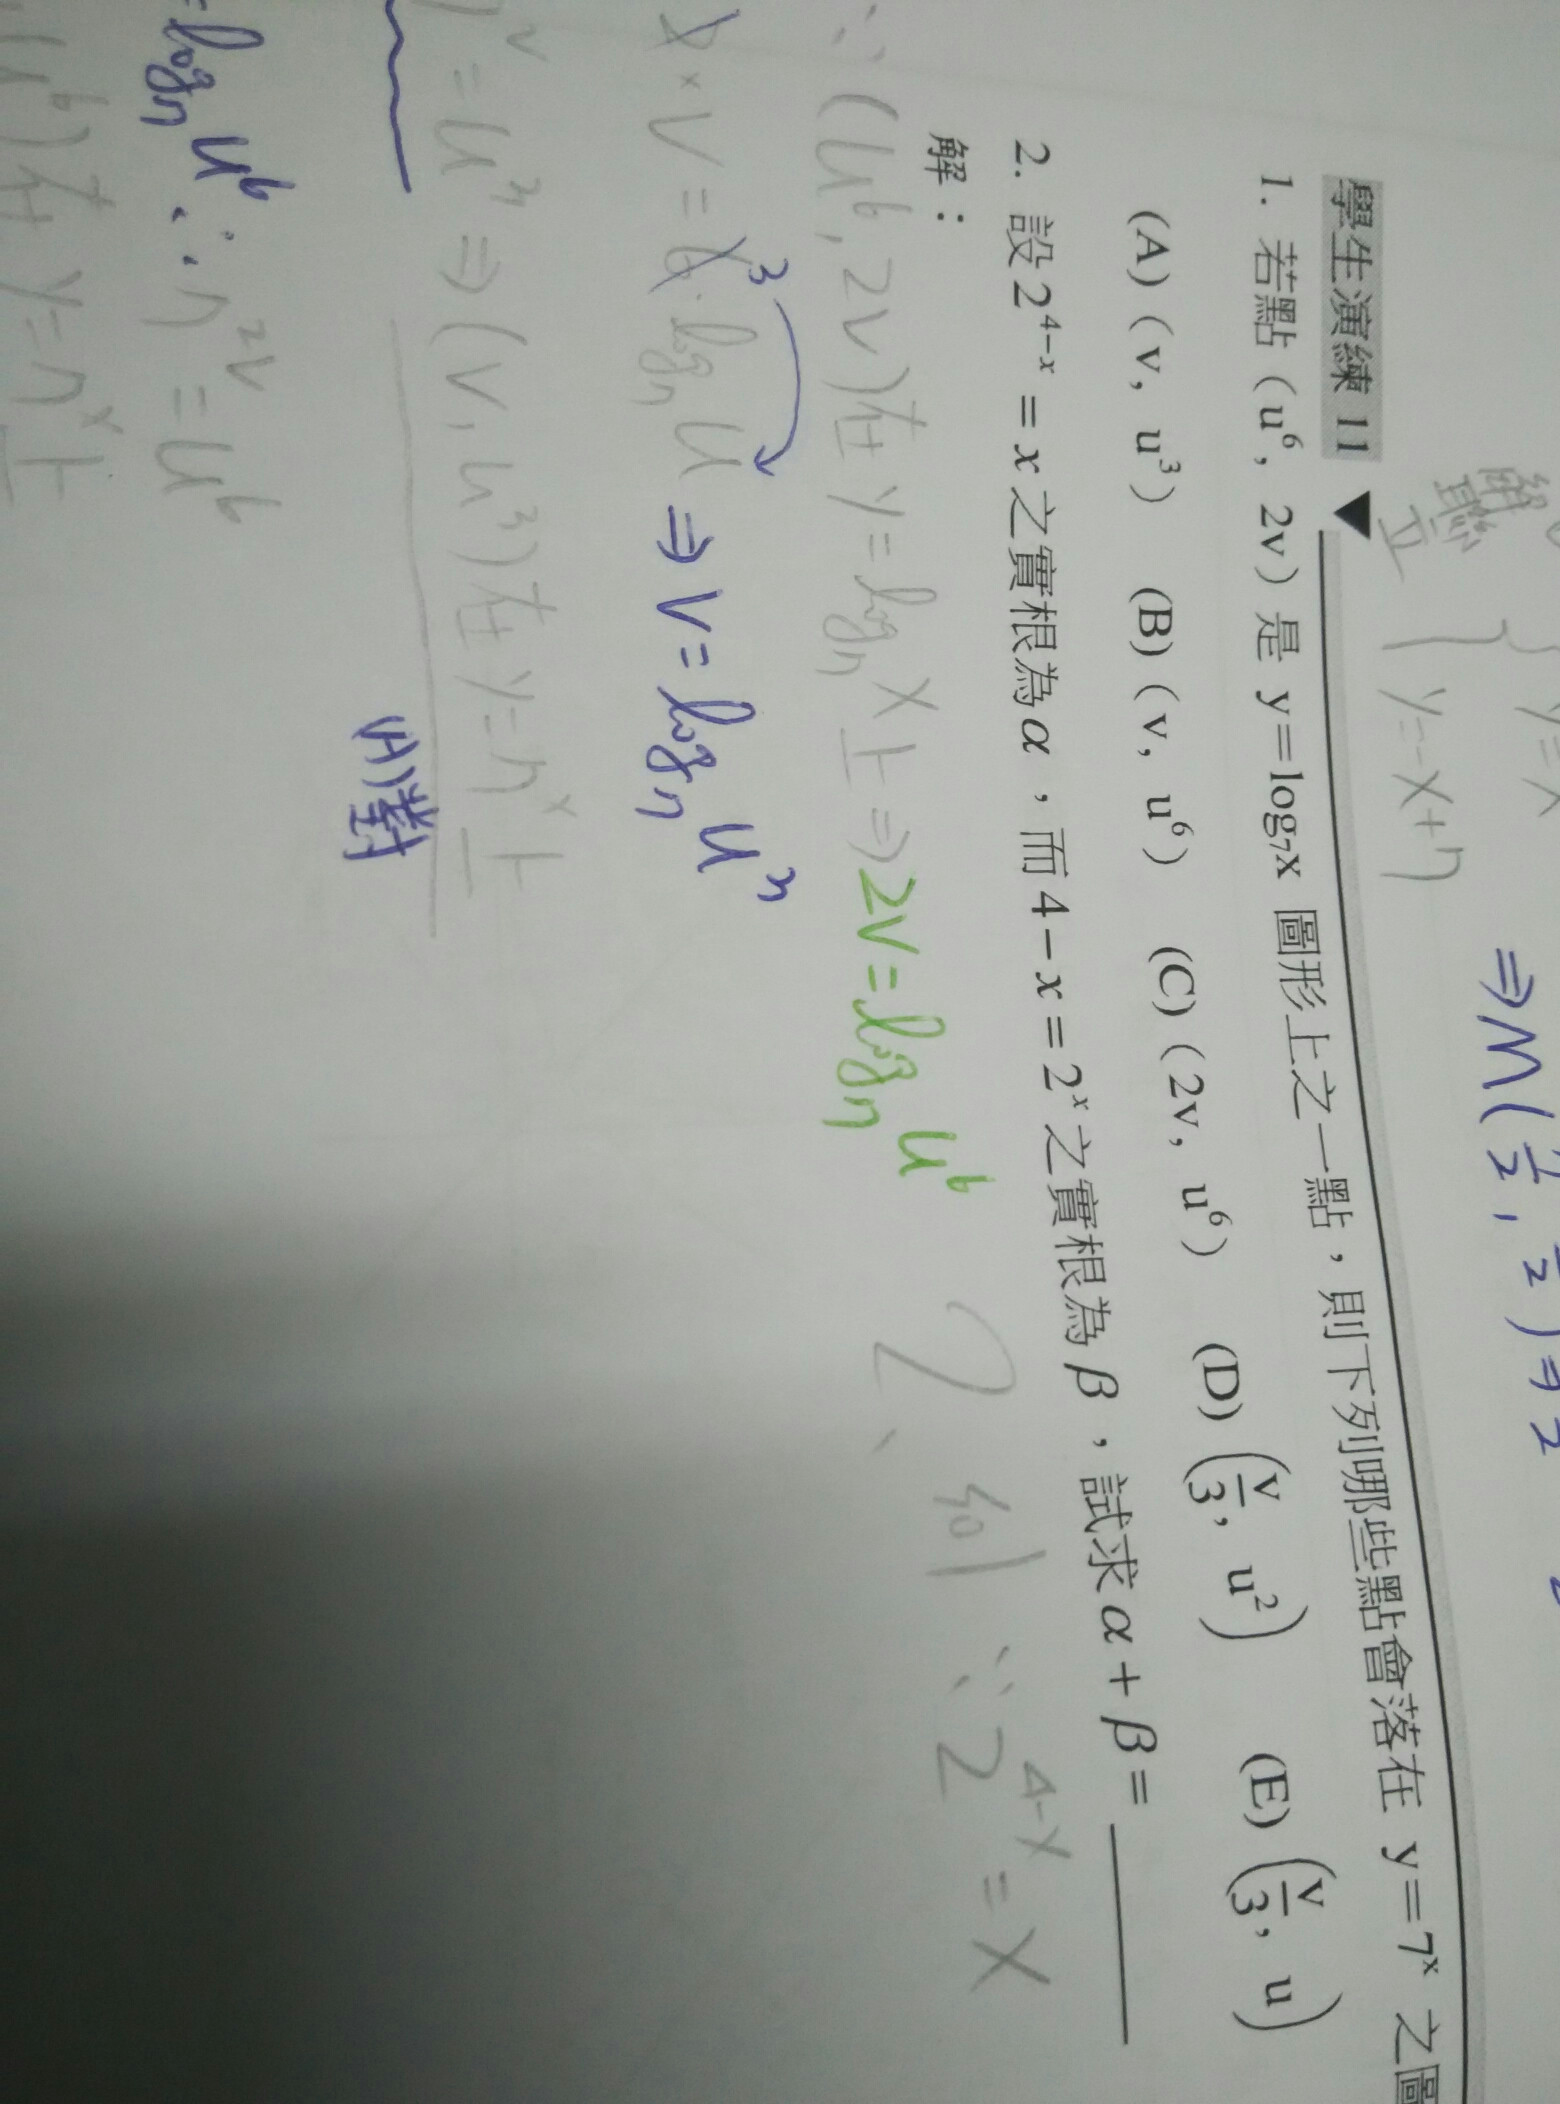 ⇒M(1/2,
解
聯
立
y=x
y=-x+7
學生演練 11
1. 若點(u⁶, 2v)是 y=log₇x 圖形上之一點,則下列哪些點會落在 y=7ˣ 之圖
(A)(v, u³) (B)(v, u⁶) (C)(2v, u⁶) (D)(v/3, u²) (E)(v/3, u)
2. 設2⁴⁻ˣ=x之實根為α,而4-x=2ˣ之實根為β,試求α+β=
解:
∵(u⁶, 2v)在 y=log₇x上⇒2v=log₇u⁶
2×v=6³·log₇u⇒v=log₇u³
ᵛ=u³⇒(v, u³)在 y=7ˣ上
(A)對
=log₇u⁶∴7²ᵛ=u⁶
u⁶)在 y=7ˣ上
2、sol ∵2⁴⁻ˣ=x